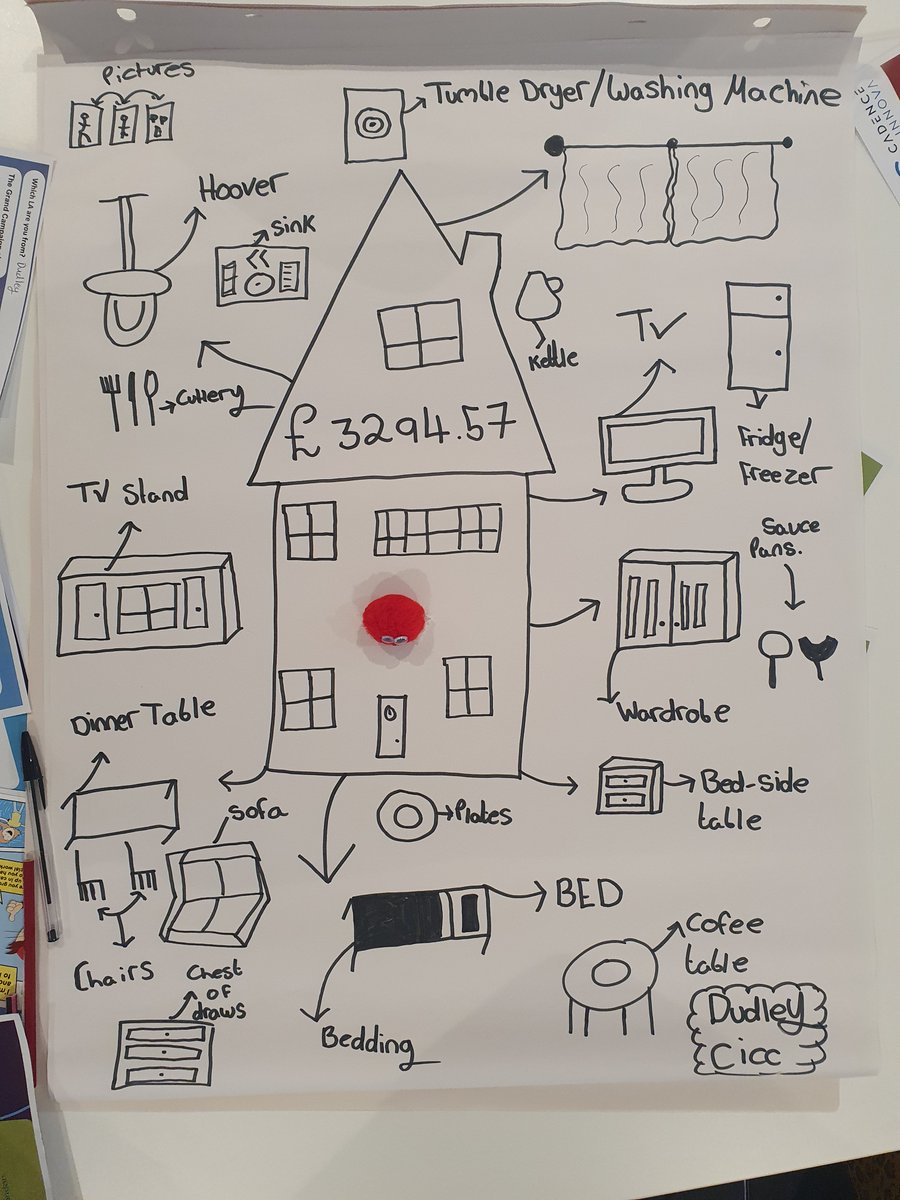 Pictures
Tumble Dryer/Washing Machine
CADENCE
INNOVA
Which LA are you from? Dudley
The Grand Campaign
Hoover
Sink
Kettle
TV
Cutlery
£3294.57
Fridge/
Freezer
TV Stand
Sauce
Pans.
Wardrobe
Dinner Table
Bed-side
table
Sofa
Plates
BED
Cofee
table
Chairs
Chest
of
draws
Bedding
Dudley
Cicc